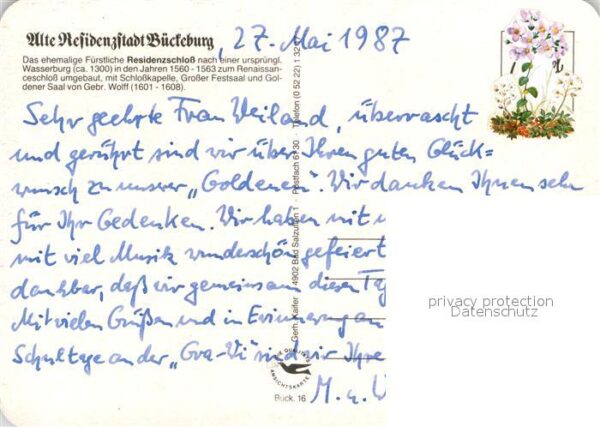 Alte Residenzstadt Bückeburg, 27. Mai 1987
Das ehemalige Fürstliche Residenzschloß nach einer ursprüngl.
Wasserburg (ca. 1300) in den Jahren 1560 - 1563 zum Renaissan-
ceschloß umgebaut, mit Schloßkapelle, Großer Festsaal und Gol-
dener Saal von Gebr. Wolff (1601 - 1608).
Sehr geehrte Frau Weiland, überrascht
und gerührt sind wir über Ihren guten Glück=
wunsch zu unserer „Goldenen“. Wir danken Ihnen sehr
für Ihr Gedenken. Wir haben mit
mit viel Musik wunderschön gefeiert
dankbar, daß wir gemeinsam diesen Tag
Mit vielen Grüßen und in Erinnerung an
Schultage an der „Gra-Wi“ sind wir Ihre
M. u. W
Gerh. Kaifer · 4902 Bad Salzuflen 1 · Postfach 6130 · Telefon (0 52 22) 1 32
ANSICHTSKARTE
Bück. 16
privacy protection
Datenschutz